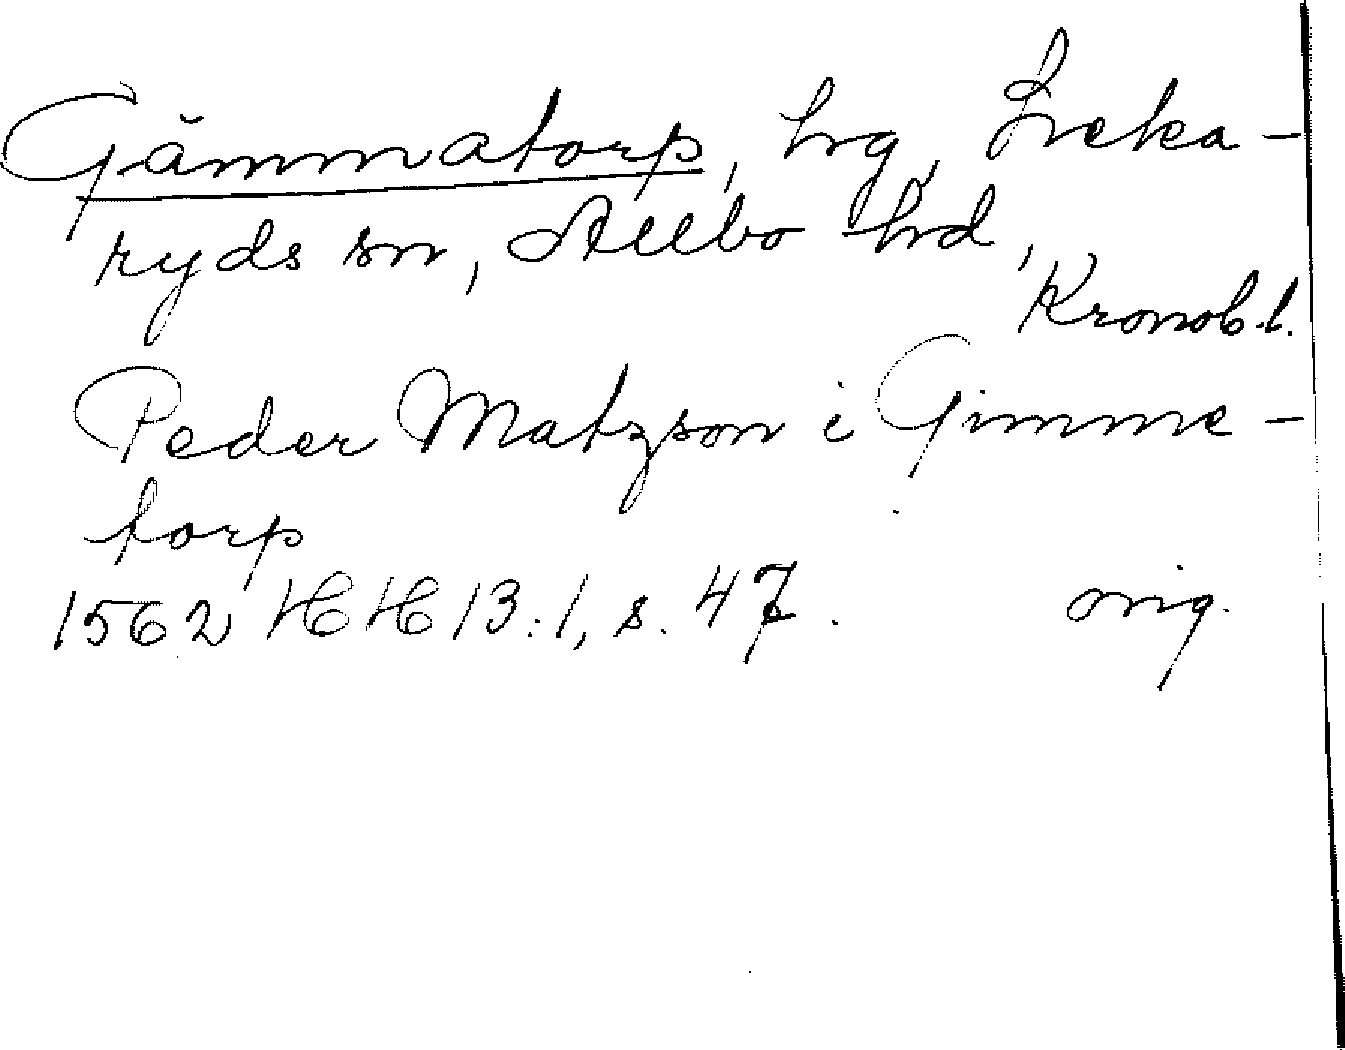 Gämmatorp, hg, Lieka-
ryds sn, Allbo hd,
Kronob.l.
Peder Matzson i Gimme-
torp
1562 HH 13:1, s. 47. orig.